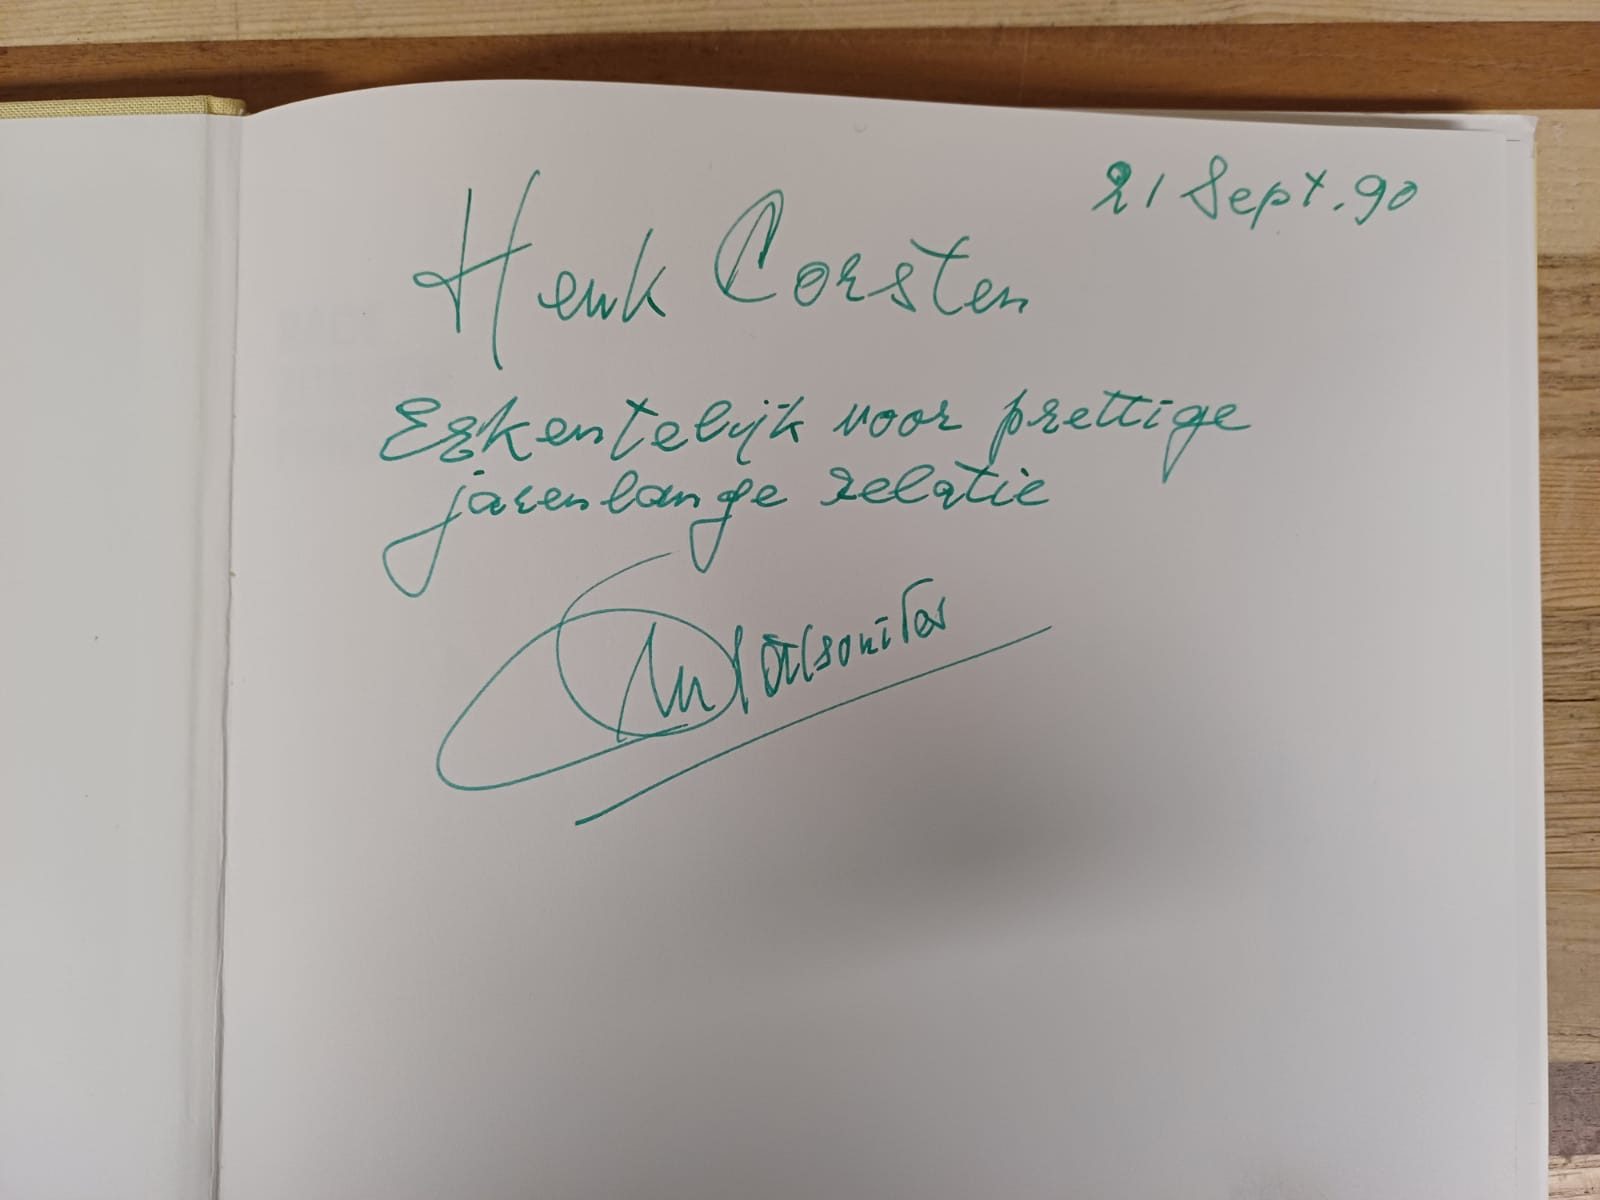 21 Sept. 90
Henk Corsten
Erkentelijk voor prettige
jarenlange relatie